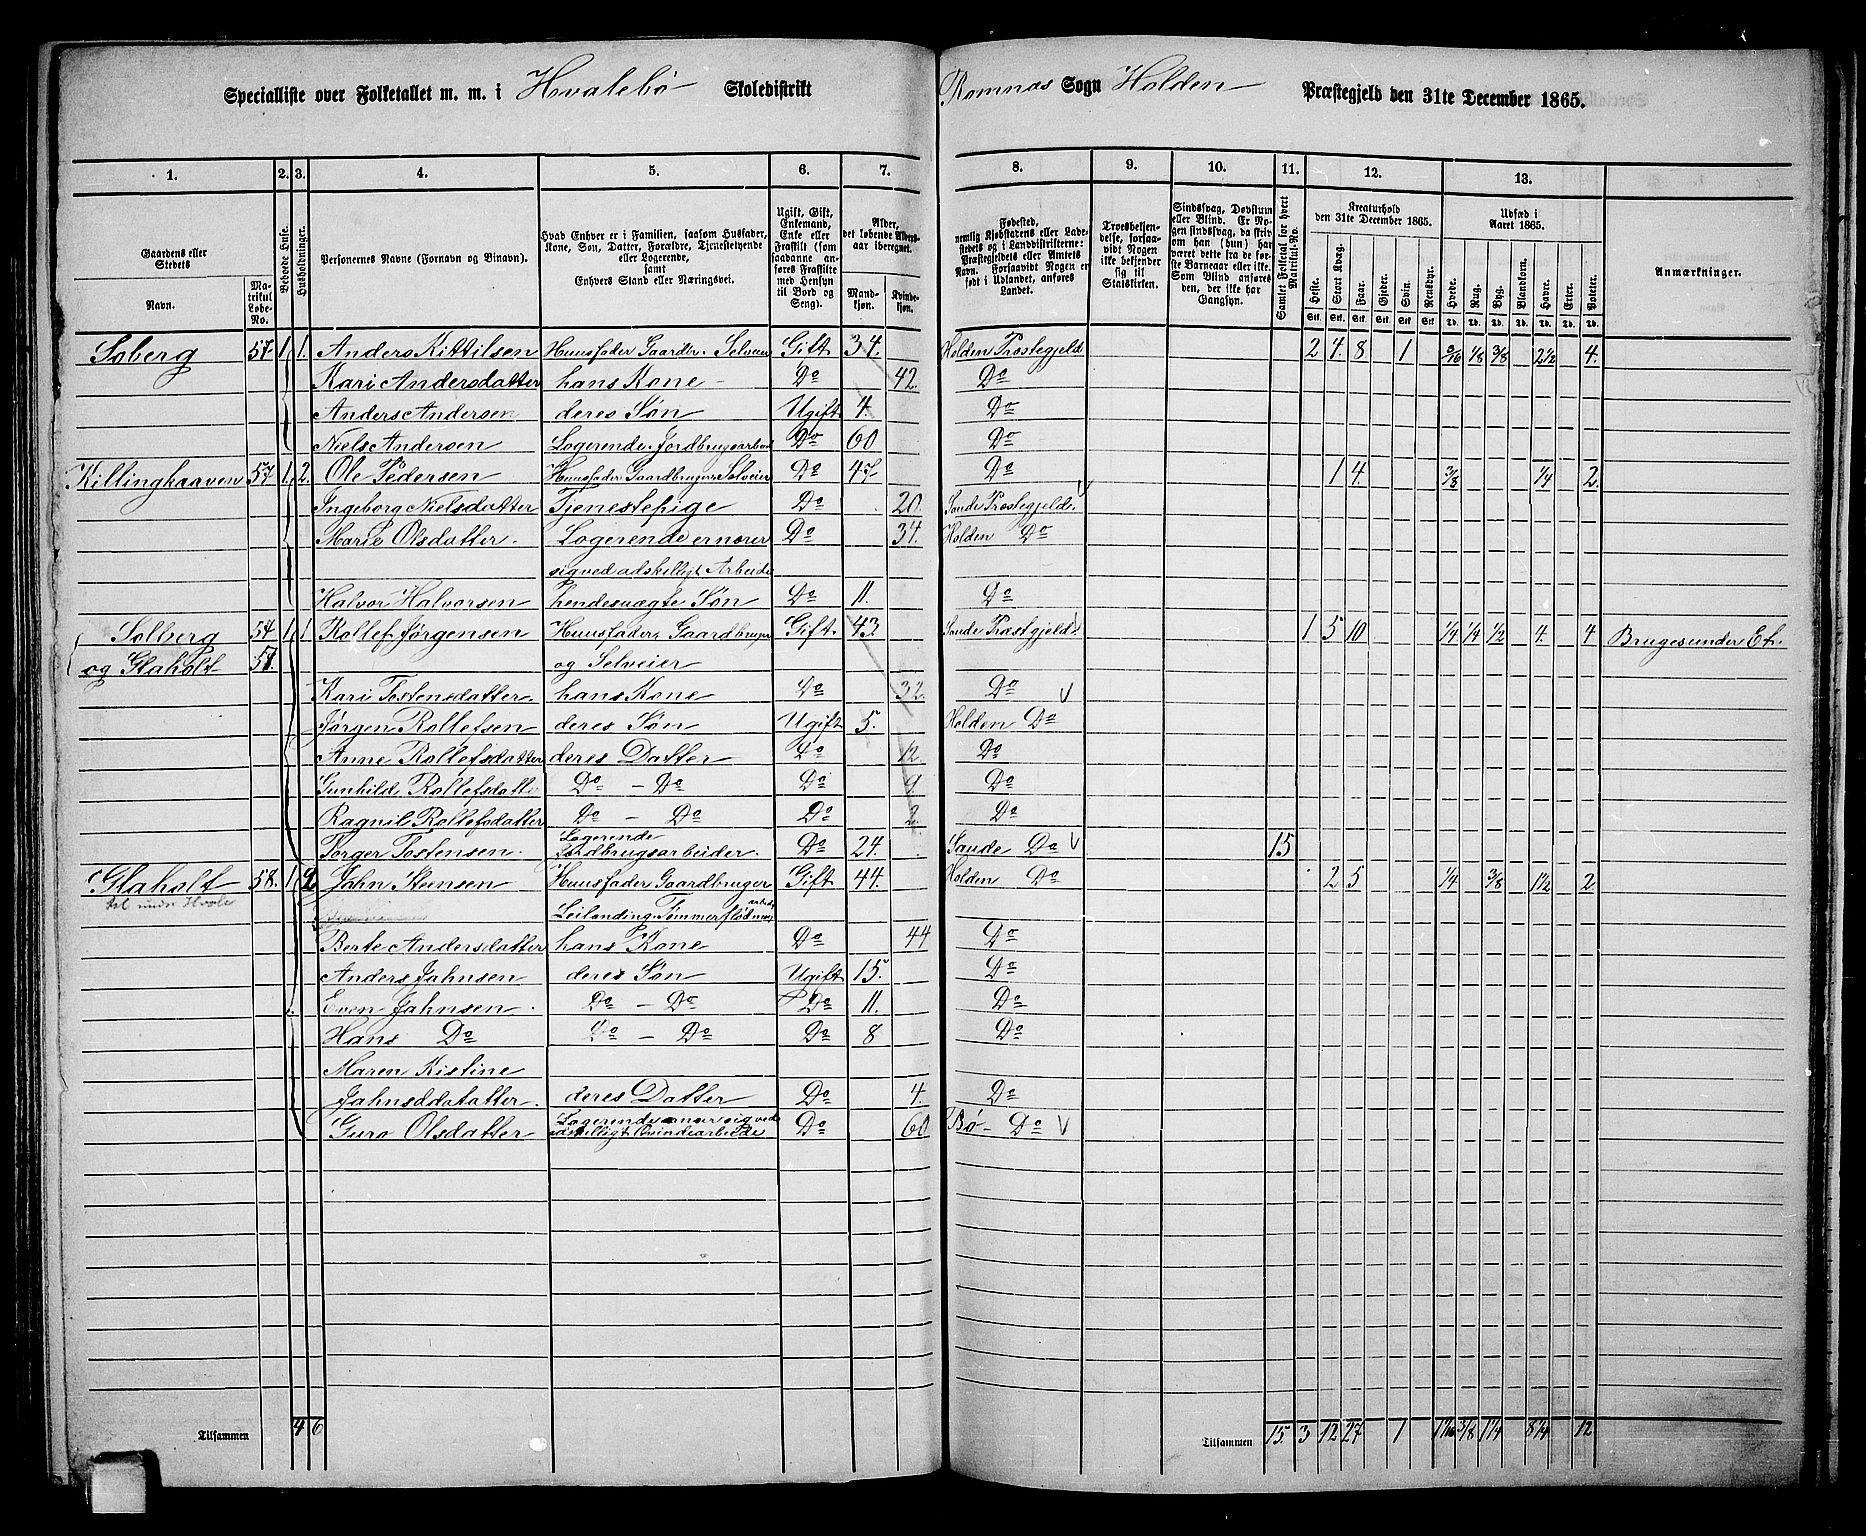 Specialliste over Folketallet m. m. i Hvalebø Skoledistrikt Romnæs Sogn Holden Præstegjeld den 31te December 1865.
1. 2. 3. 4. 5. 6. 7. 8. 9. 10. 11. 12. 13.
Gaardens eller Stedets
Navn.
Matrikul Løbe-No.
Beboede Huse.
Husholdninger.
Personernes Navne (Fornavn og Binavn).
Hvad Enhver er i Familien, saasom Husfader, Kone, Søn, Datter, Forældre, Tjenestetyende eller Logerende, samt Enhvers Stand eller Næringsvei.
Ugift, Gift, Enkemand, Enke eller Fraskilt (som saadanne anføres Fraskilte med Hensyn til Bord og Seng).
Alder, det løbende Aldersaar iberegnet.
Mandkjøn. Kvindekjøn.
Fødested, nemlig Kjøbstadens eller Ladestedets og i Landdistrikterne: Præstegjeldets eller Amtets Navn. Forsaavidt Nogen er født i Udlandet, anføres Landet.
Troesbekjendelse, forsaavidt Nogen ikke bekjender sig til Statskirken.
Sindssvag, Døvstum eller Blind. Er Nogen sindssvag, da skrives om han (hun) har været dette fra de første Barneaar eller ikke. Som Blind anføres den, der ikke har Gangsyn.
Samlet Folketal for hvert Matrikul-No.
Kreaturhold den 31te December 1865.
Heste. Stort Kvæg. Faar. Gjeder. Svin. Rensdyr.
Udsæd i Aaret 1865.
Hvede. Rug. Byg. Blandkorn. Havre. Erter. Poteter.
Anmærkninger.
Soberg 57 1 1. Anders Kittilsen Huusfader Gaardbr. Selveier Gift 34. Holden Præstegjeld 2 4. 8 1 3/16 1/8 3/8 2 1/2 4.
Kari Andersdatter hans Kone Do 42. Do
Anders Andersen deres Søn Ugift 4. Do
Niels Andersen Logerende, Jordbrugsarbeid Do 60 Do
Killingkaaven 57 1 2. Ole Pedersen Huusfader Gaardbruger Selveier Do 47 Do 1 4. 3/8 1/4 2.
Ingeborg Nielsdatter Tjenestepige Do 20. Saude Præstegjeld.
Marie Olsdatter. Logerende ernærer Do 34. Holden Do
sig ved adskilligt Arbeide
Halvor Halvorsen hendes uægte Søn Do 11. Do
Solberg 54 1 1 Rollef Jørgensen Huusfader, Gaardbruger Gift 43. Saude Præstgjeld. 1 5 10 1/4 1/4 1/2 4. 4 Bruges under Et.
og Glaholt 57. og Selveier
Kari Tostensdatter. hans Kone Do 32. Do
Jørgen Rollefsen deres Søn Ugift 5. Holden Do
Anne Rollefsdatter deres Datter Do 12. Do
Gunhild Rollefsdatte Do - Do Do 9 Do
Ragnil Rollefsdatter Do - Do Do 2. Do
Torger Tostensen. Logerende Jordbrugsarbeider. Do 24. Saude Do 15
Glaholt 58. 1 2 Jahn Steensen Huusfader Gaardbruger Gift 44. Holden Do 2 5 1/4 3/8 1 1/2 2
Leilending. Tømmerflødning
Berte Andersdatter hans Kone Do 44 Do
Anders Jahnsen deres Søn Ugift 15. Do
Even Jahnsen. Do - Do Do 11. Do
Hans Do Do - Do Do 8 Do
Maren Kistine
Jahnsddatatter. deres Datter Do 4. Do
Guro Olsdatter Logerende nærer sig ved adskilligt Qvindearbeide Do 60 Bø - Do
Tilsammen 4 6 Tilsammen 15. 3 12 27 1 1 1/16 3/8 1 1/4 8 1/4 12